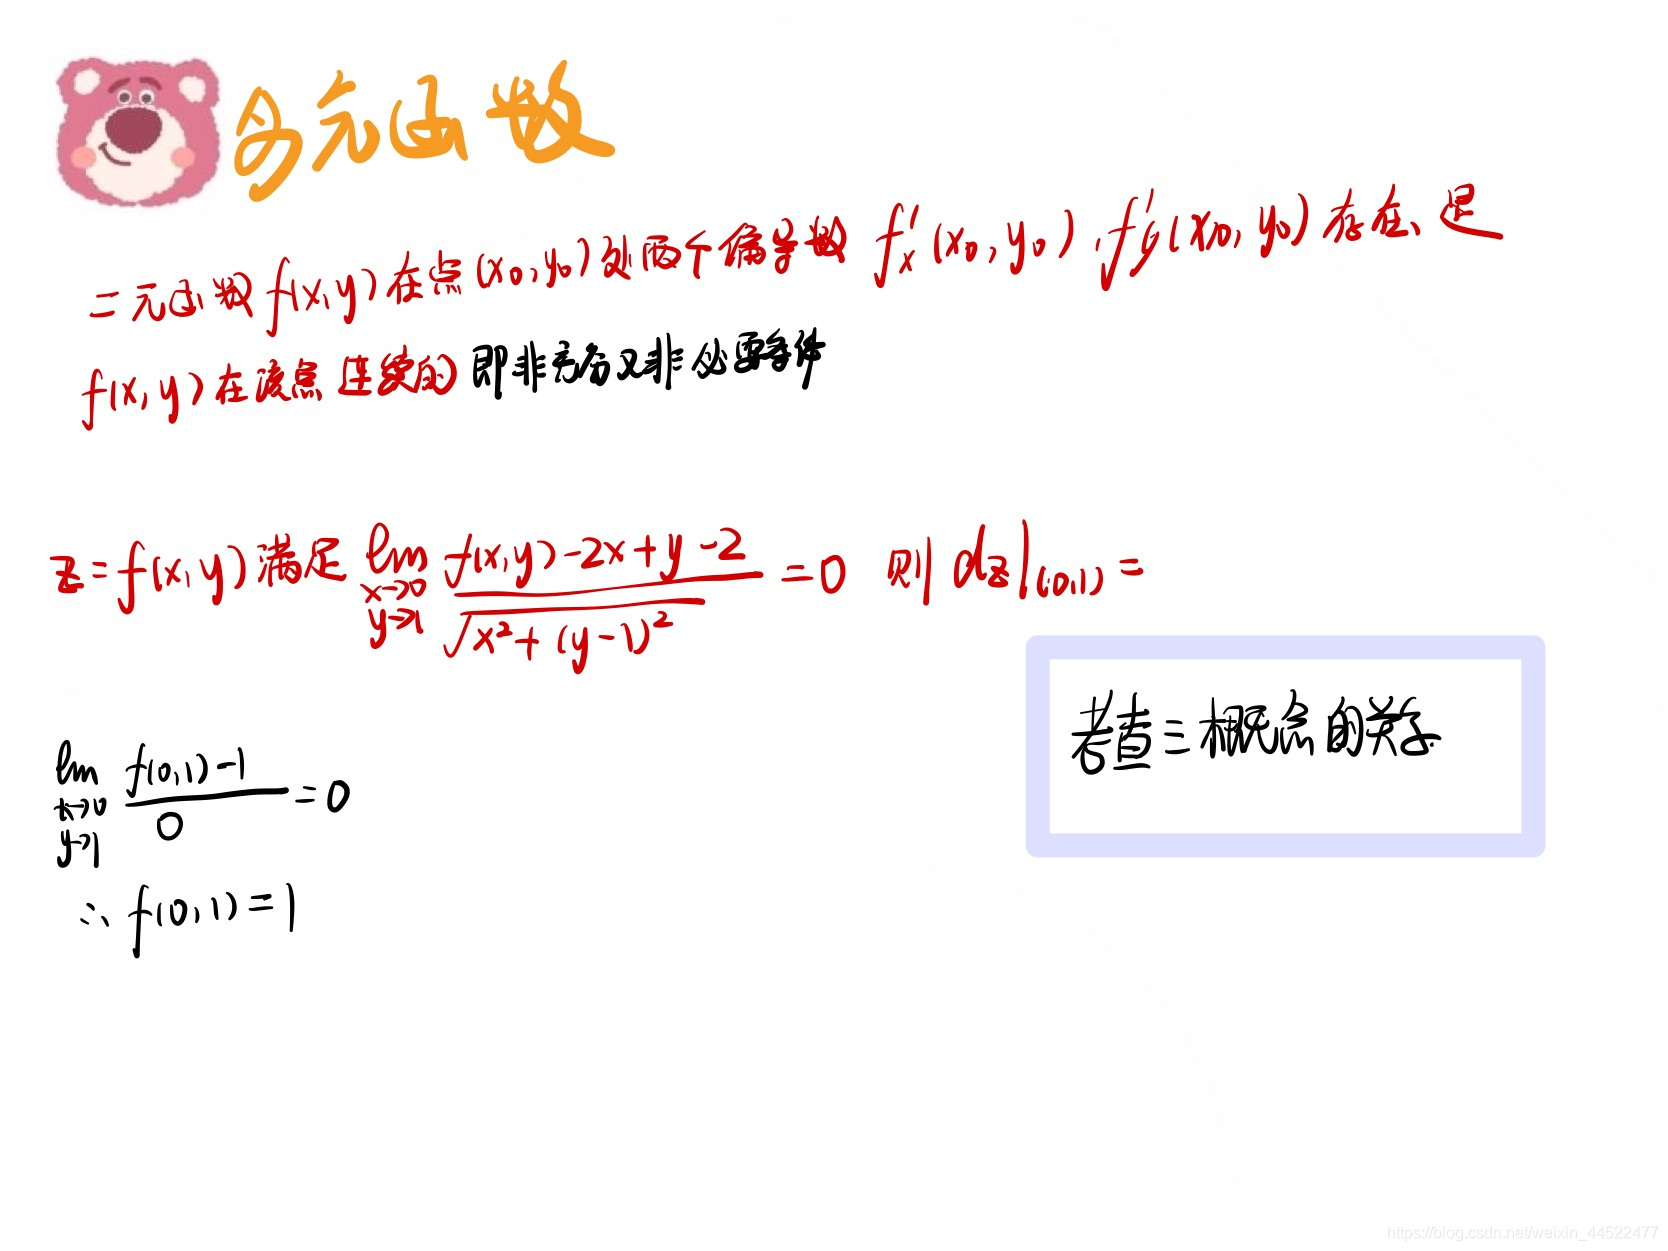 多元函数
二元函数 f(x,y) 在点 (x₀,y₀) 处两个偏导数 f'ₓ(x₀,y₀),f'ᵧ(x₀,y₀) 存在、是
f(x,y) 在该点 连续的 即非充分又非必要条件
z=f(x,y) 满足 lim x→0 y→1 (f(x,y)-2x+y-2)/√(x²+(y-1)²) =0 则 dz|(0,1) =
考查三概念的关系
lim x→0 y→1 (f(0,1)-1)/0 =0
∴ f(0,1)=1
https://blog.csdn.net/weixin_44522477